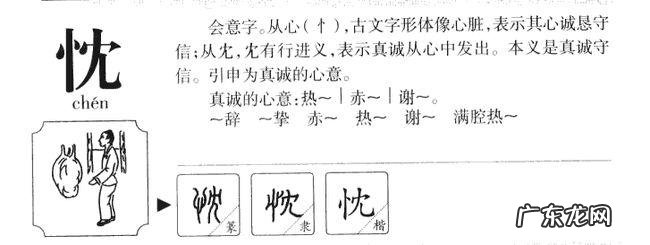 忱
chén
会意字。从心(忄),古文字形体像心脏,表示其心诚恳守
信;从冘,冘有行进义,表示真诚从心中发出。本义是真诚守
信。引申为真诚的心意。
真诚的心意:热~|赤~|谢~。
~辞 ~挚 赤~ 热~ 谢~ 满腔热~
忱 篆
忱 隶
忱 楷
广东龙网